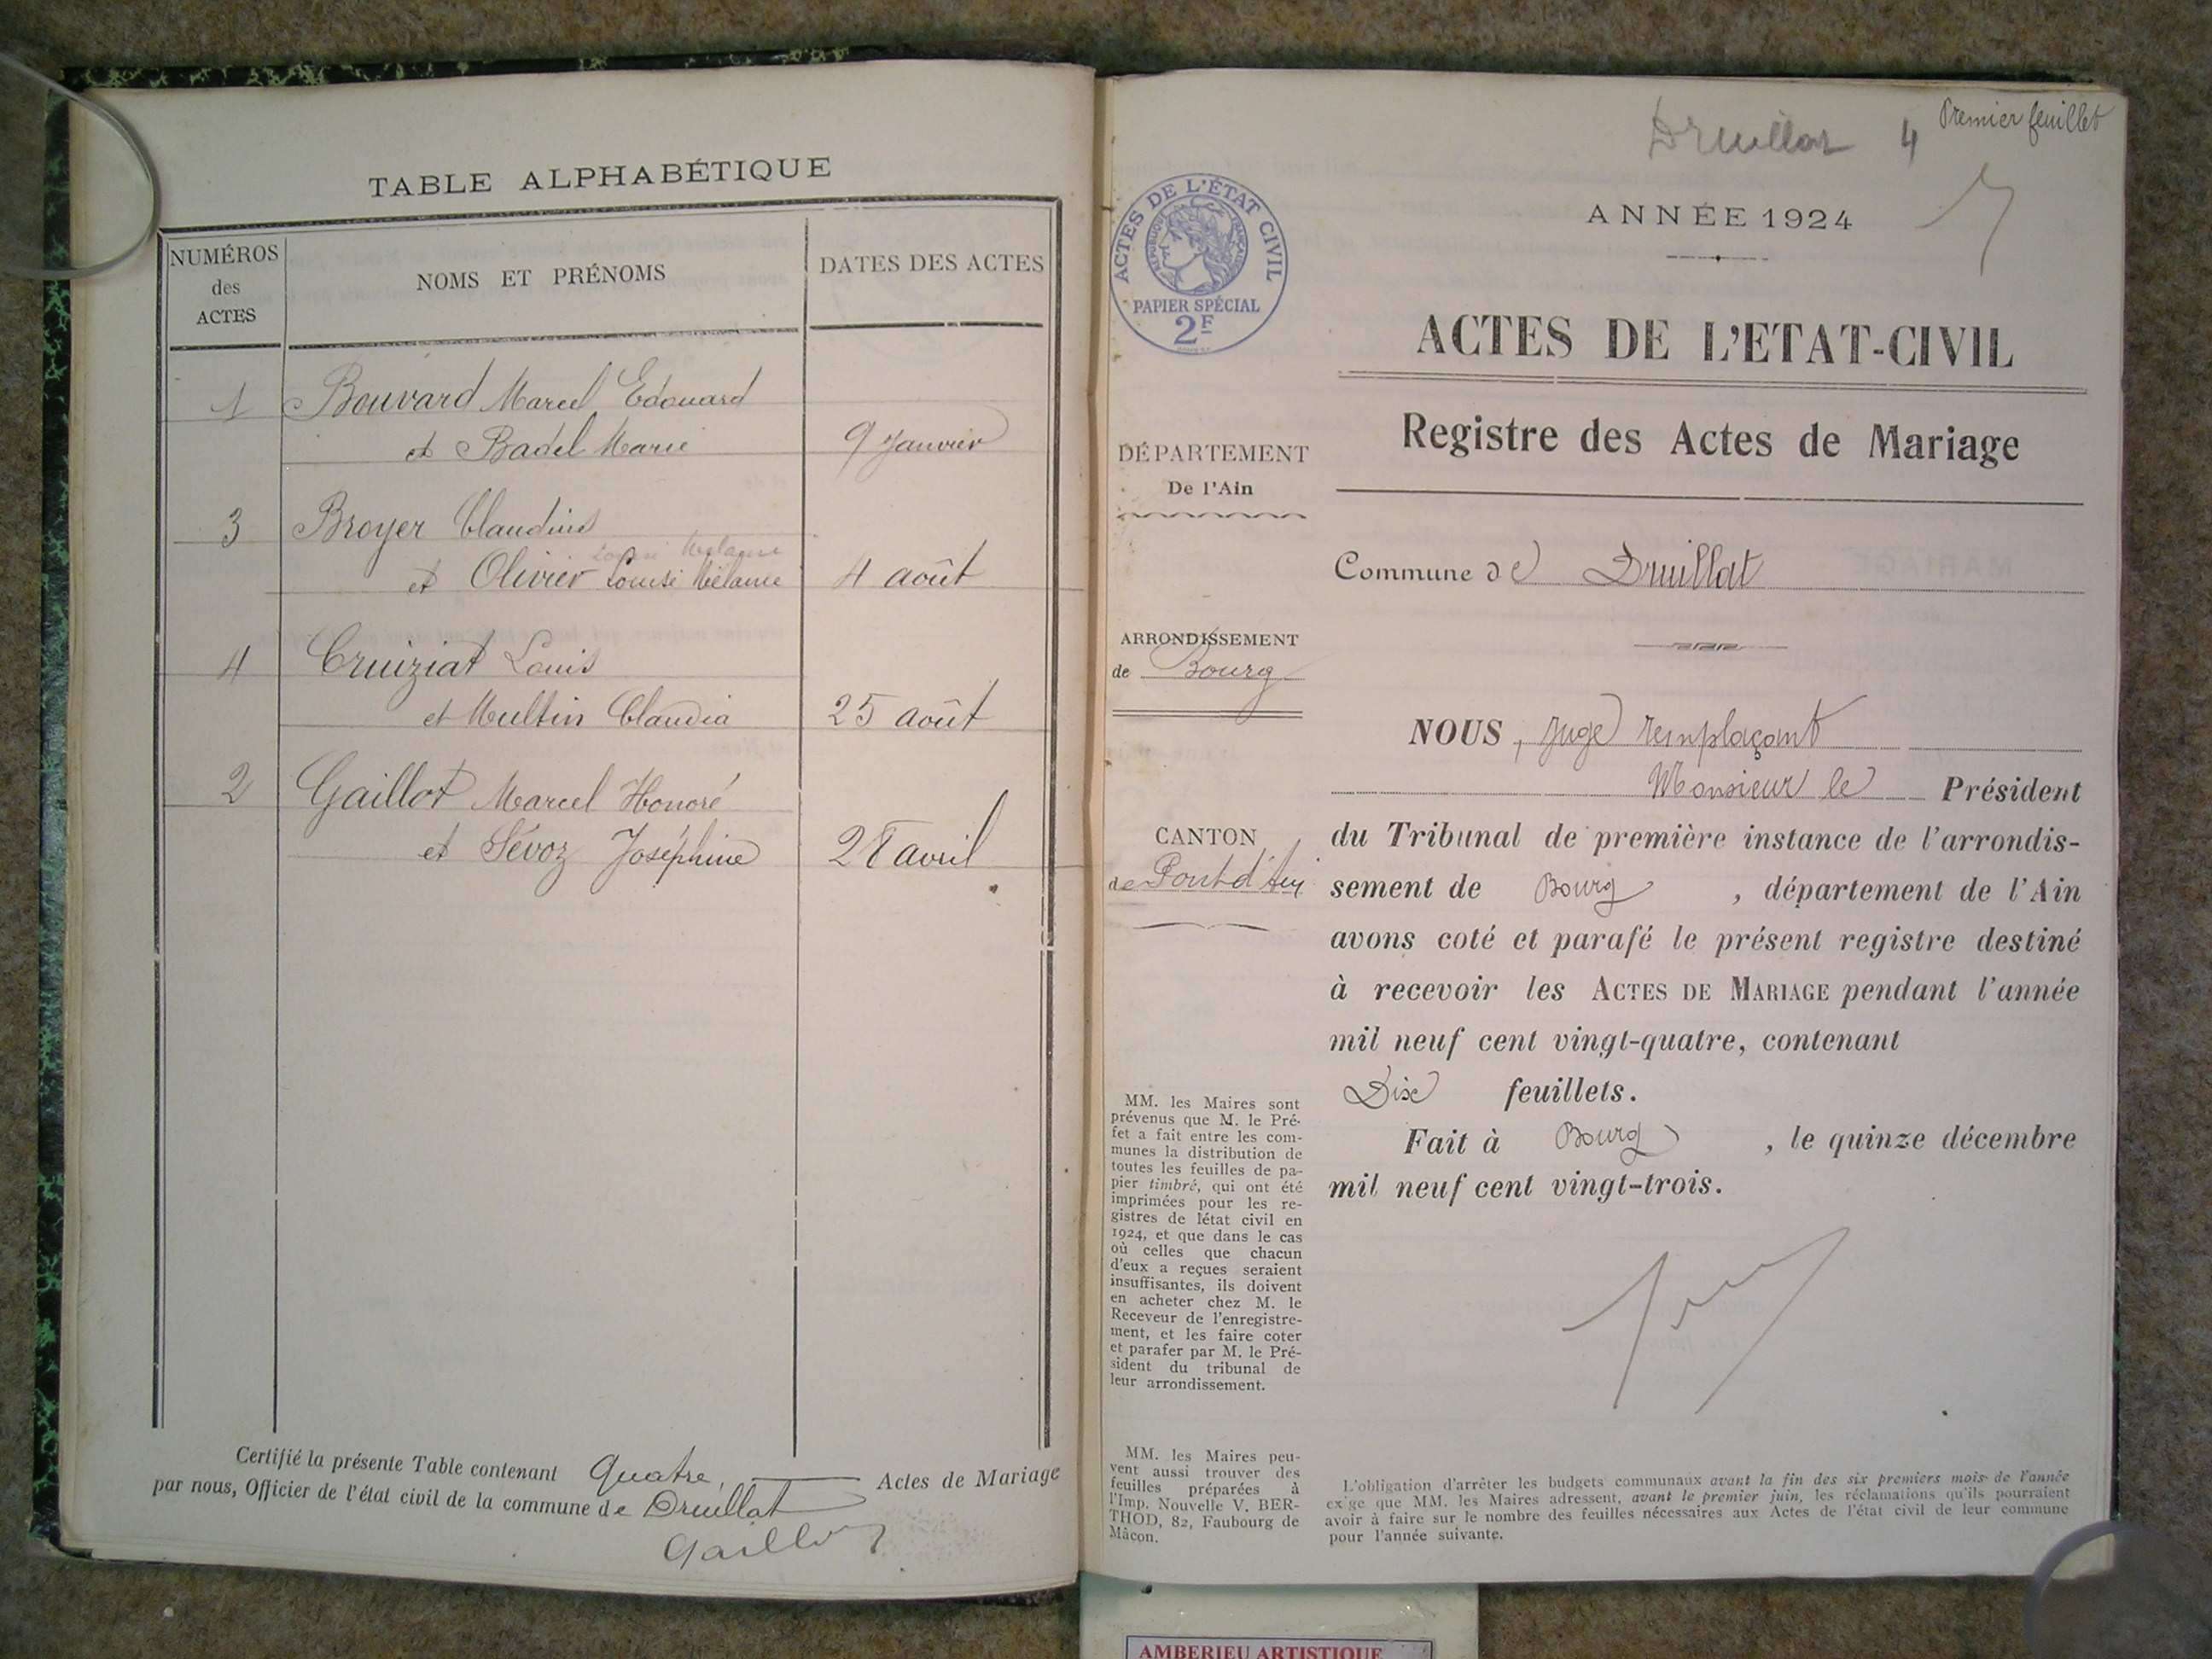 TABLE ALPHABÉTIQUE
NUMÉROS
des
ACTES
NOMS ET PRÉNOMS
DATES DES ACTES
1 Bouvard Marcel Edouard
et Badel Marie 9 Janvier
3 Broyer Claudius
Louise Mélanie
et Olivier Louise Mélanie 4 août
4 Cruiziat Louis
et Multin Claudia 25 août
2 Gaillot Marcel Honoré
et Sévoz Joséphine 28 avril
Certifié la présente Table contenant Quatre, Actes de Mariage
par nous, Officier de l'état civil de la commune de Druillat
Gaillot
Druillat 4 Premier feuillet
ACTES DE L'ÉTAT CIVIL
REPUBLIQUE FRANÇAISE
PAPIER SPÉCIAL
2F
ANNÉE 1924
ACTES DE L'ETAT-CIVIL
Registre des Actes de Mariage
DÉPARTEMENT
De l'Ain
Commune de Druillat
ARRONDISSEMENT
de Bourg
CANTON
de Pont d'Ain
NOUS, Juge remplaçant
Monsieur le Président
du Tribunal de première instance de l'arrondis-
sement de Bourg, département de l'Ain
avons coté et parafé le présent registre destiné
à recevoir les ACTES DE MARIAGE pendant l'année
mil neuf cent vingt-quatre, contenant
Dix feuillets.
Fait à Bourg, le quinze décembre
mil neuf cent vingt-trois.
MM. les Maires sont
prévenus que M. le Pré-
fet a fait entre les com-
munes la distribution de
toutes les feuilles de pa-
pier timbré, qui ont été
imprimées pour les re-
gistres de létat civil en
1924, et que dans le cas
où celles que chacun
d'eux a reçues seraient
insuffisantes, ils doivent
en acheter chez M. le
Receveur de l'enregistre-
ment, et les faire coter
et parafer par M. le Pré-
sident du tribunal de
leur arrondissement.
MM. les Maires peu-
vent aussi trouver des
feuilles préparées à
l'Imp. Nouvelle V. BER-
THOD, 82, Faubourg de
Mâcon.
L'obligation d'arrêter les budgets communaux avant la fin des six premiers mois de l'année
exige que MM. les Maires adressent, avant le premier juin, les réclamations qu'ils pourraient
avoir à faire sur le nombre des feuilles nécessaires aux Actes de l'état civil de leur commune
pour l'année suivante.
AMBERIEU ARTISTIQUE